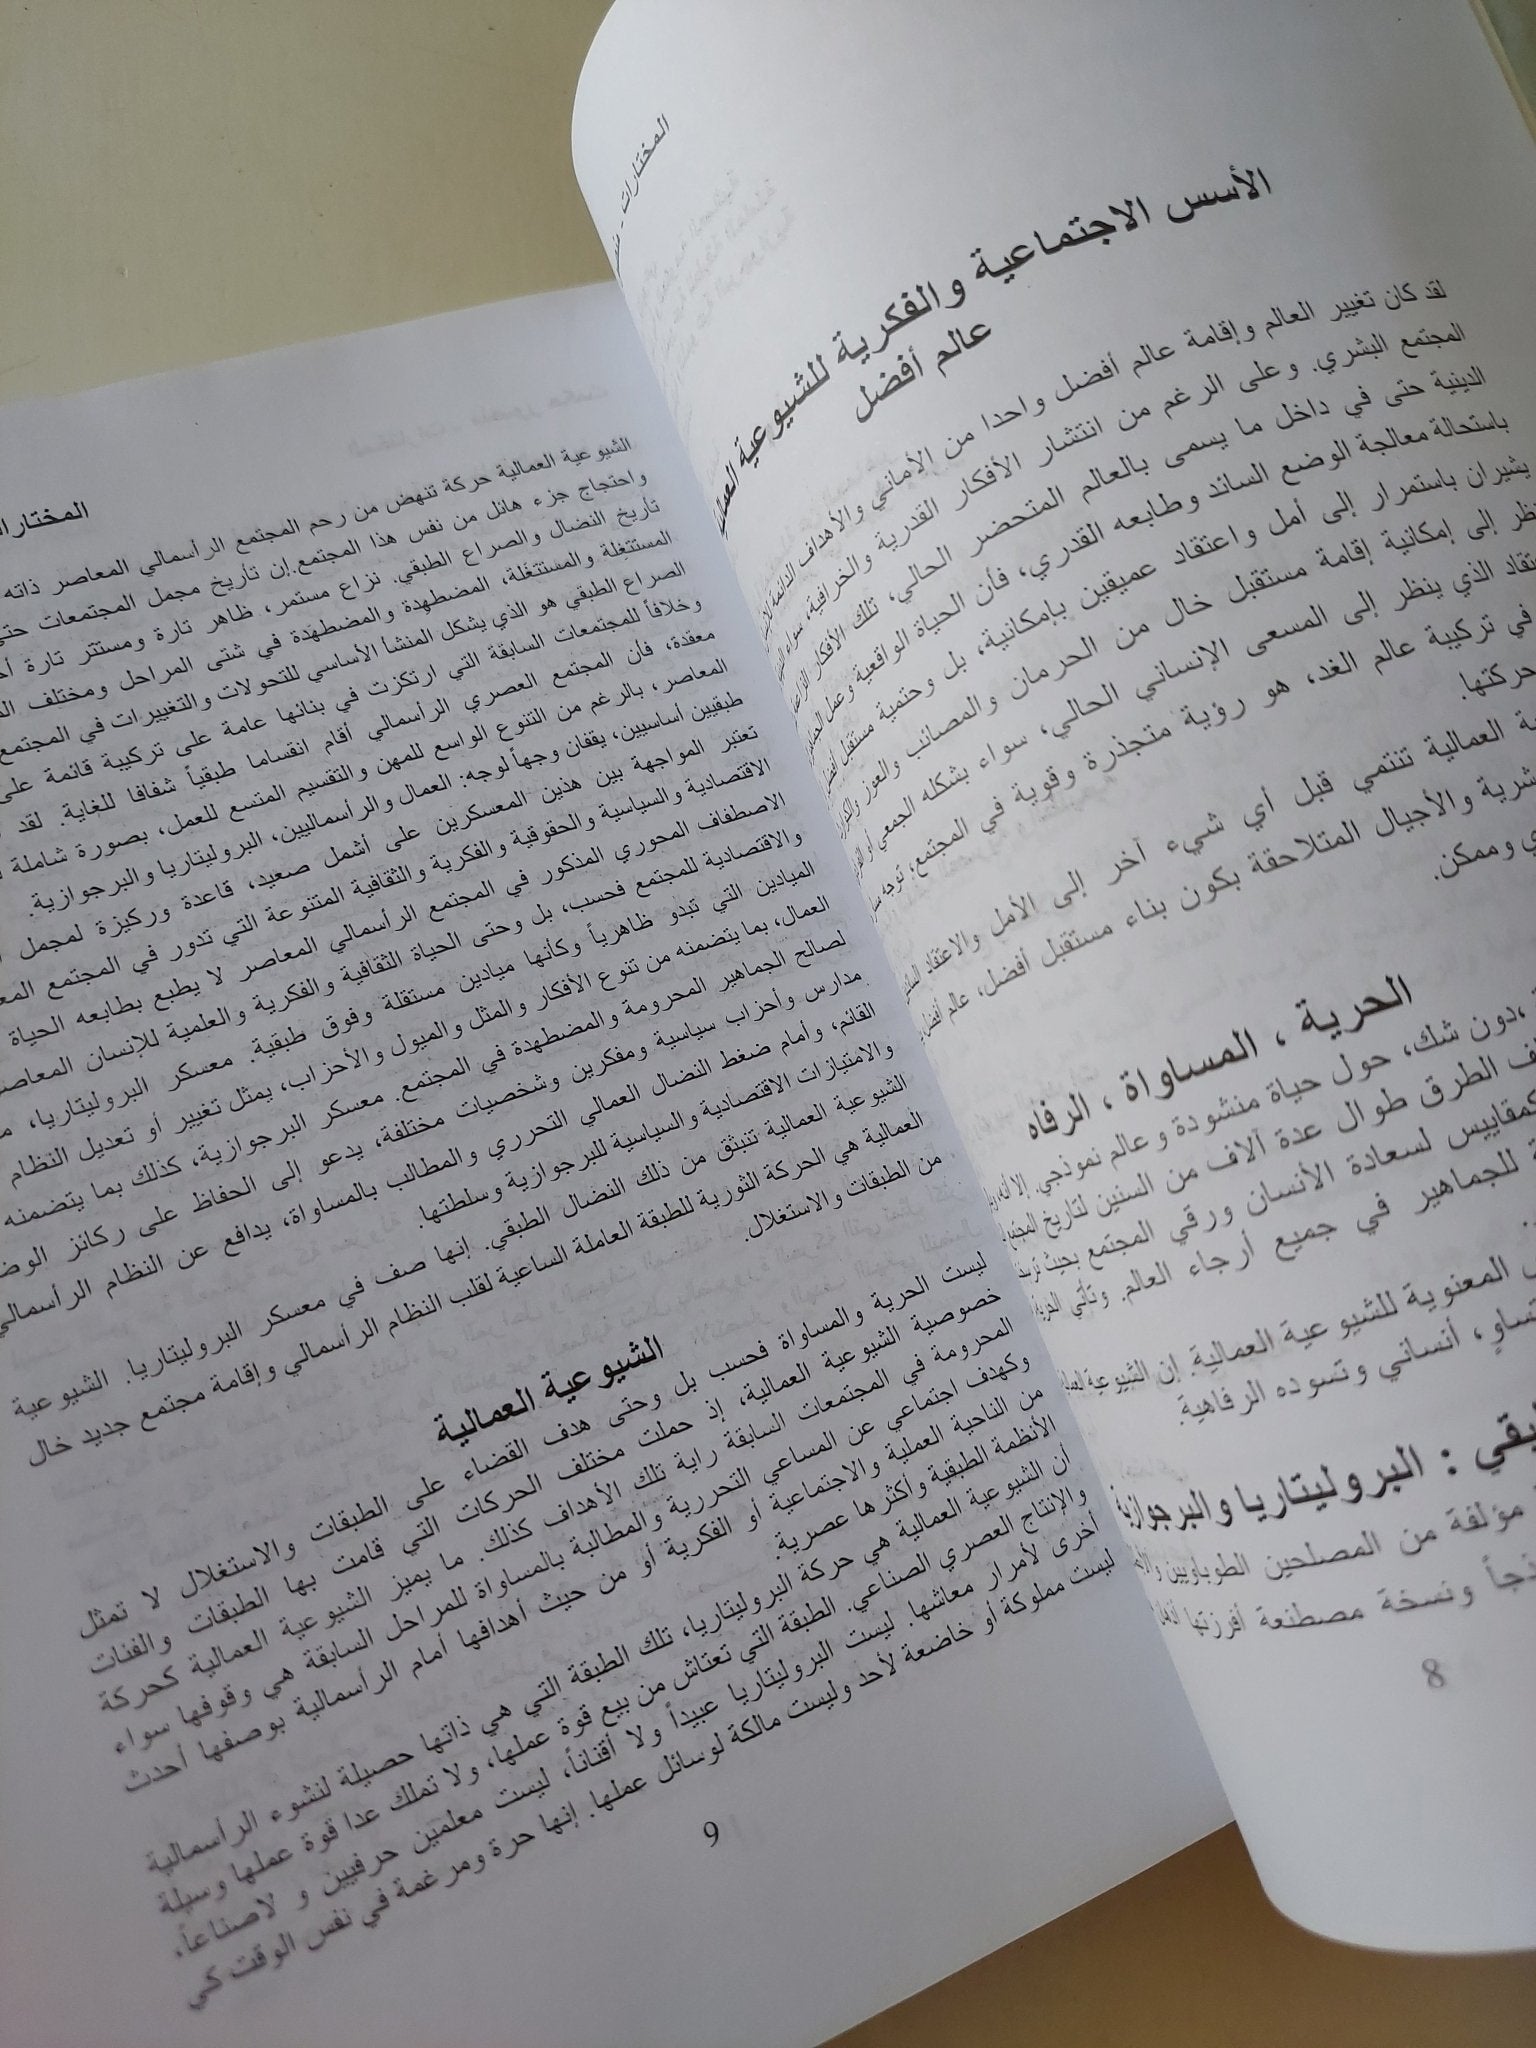 المختارات -
الأسس الاجتماعية والفكرية للشيوعية
عالم أفضل
لقد كان تغيير العالم وإقامة عالم أفضل واحدا من الأماني والأهداف الدائمة
المجتمع البشري. وعلى الرغم من انتشار الأفكار القدرية والخرافية، سواء
الدينية حتى في داخل ما يسمى بالعالم المتحضر الحالي، تلك الأفكار
باستحالة معالجة الوضع السائد وطابعه القدري، فأن الحياة الواقعية وعمل
يشيران باستمرار إلى أمل واعتقاد عميقين بإمكانية، بل وحتمية مستقبل أفضل
إلى إمكانية إقامة مستقبل خال من الحرمان والمصائب والعوز
الذي ينظر إلى المسعى الإنساني الحالي، سواء بشكله الجمعي أو
في تركيبة عالم الغد، هو رؤية متجذرة وقوية في المجتمع؛ توجه
حركتها.
العمالية تنتمي قبل أي شيء آخر إلى الأمل والاعتقاد
والأجيال المتلاحقة بكون بناء مستقبل أفضل، عالم أفضل
وممكن.
الحرية ، المساواة ، الرفاه
،دون شك، حول حياة منشودة وعالم نموذجي. إلا أنه
الطرق طوال عدة آلاف من السنين لتاريخ المجتمع
كمقاييس لسعادة الأنسان ورقي المجتمع بحيث
للجماهير في جميع أرجاء العالم. وتأتي
المعنوية للشيوعية العمالية. إن الشيوعية
أنساني وتسوده الرفاهية.
: البروليتاريا والبرجوازية
مؤلفة من المصلحين الطوباويين
ونسخة مصطنعة أفرزتها
8
الشيوعية العمالية حركة تنهض من رحم المجتمع الرأسمالي المعاصر ذاته
واحتجاج جزء هائل من نفس هذا المجتمع.إن تأريخ مجمل المجتمعات حتى
تأريخ النضال والصراع الطبقي. نزاع مستمر، ظاهر تارة ومستتر تارة
المستغِلة والمستغَلة، المضطهِدة والمضطهَدة في شتى المراحل ومختلف
الصراع الطبقي هو الذي يشكل المنشأ الأساسي للتحولات والتغييرات في المجتمع
وخلافاً للمجتمعات السابقة التي ارتكزت في بنائها عامة على تركيبة قائمة على
معقدة، فأن المجتمع العصري الرأسمالي أقام انقساما طبقياً شفافا للغاية. لقد
المعاصر، بالرغم من التنوع الواسع للمهن والتقسيم المتسع للعمل، بصورة شاملة
طبقيين أساسيين، يقفان وجهاً لوجه: العمال والرأسماليين، البروليتاريا والبرجوازية.
تعتبر المواجهة بين هذين المعسكرين على أشمل صعيد، قاعدة وركيزة لمجمل
الاقتصادية والسياسية والحقوقية والفكرية والثقافية المتنوعة التي تدور في المجتمع
الاصطفاف المحوري المذكور في المجتمع الرأسمالي المعاصر لا يطبع بطابعه الحياة
والاقتصادية للمجتمع فحسب، بل وحتى الحياة الثقافية والفكرية والعلمية للإنسان المعاصر
الميادين التي تبدو ظاهرياً وكأنها ميادين مستقلة وفوق طبقية. معسكر البروليتاريا،
العمال، بما يتضمنه من تنوع الأفكار والمثل والميول والأحزاب، يمثل تغيير أو تعديل النظام
لصالح الجماهير المحرومة والمضطهدة في المجتمع. معسكر البرجوازية، كذلك بما يتضمنه
مدارس وأحزاب سياسية ومفكرين وشخصيات مختلفة، يدعو إلى الحفاظ على ركائز
القائم، وأمام ضغط النضال العمالي التحرري والمطالب بالمساواة، يدافع عن النظام الرأسمالي
والامتيازات الاقتصادية والسياسية للبرجوازية وسلطتها.
الشيوعية العمالية تنبثق من ذلك النضال الطبقي. إنها صف في معسكر البروليتاريا. الشيوعية
العمالية هي الحركة الثورية للطبقة العاملة الساعية لقلب النظام الرأسمالي وإقامة مجتمع جديد خال
من الطبقات والاستغلال.
الشيوعية العمالية
ليست الحرية والمساواة فحسب بل وحتى هدف القضاء على الطبقات والاستغلال لا تمثل
خصوصية الشيوعية العمالية، إذ حملت مختلف الحركات التي قامت بها الطبقات والفئات
المحرومة في المجتمعات السابقة راية تلك الأهداف كذلك. ما يميز الشيوعية العمالية كحركة
وكهدف اجتماعي عن المساعي التحررية والمطالبة بالمساواة للمراحل السابقة هي وقوفها سواء
من الناحية العملية والاجتماعية أو الفكرية أو من حيث أهدافها أمام الرأسمالية بوصفها أحدث
الأنظمة الطبقية وأكثرها عصرية.
أن الشيوعية العمالية هي حركة البروليتاريا، تلك الطبقة التي هي ذاتها حصيلة لنشوء الرأسمالية
والإنتاج العصري الصناعي. الطبقة التي تعتاش من بيع قوة عملها، ولا تملك عدا قوة عملها وسيلة
أخرى لأمرار معاشها. ليست البروليتاريا عبيداً ولا أقناناً، ليست معلمين حرفيين و لاصناعاً،
ليست مملوكة أو خاضعة لأحد وليست مالكة لوسائل عملها. إنها حرة ومرغمة في نفس الوقت كي
9